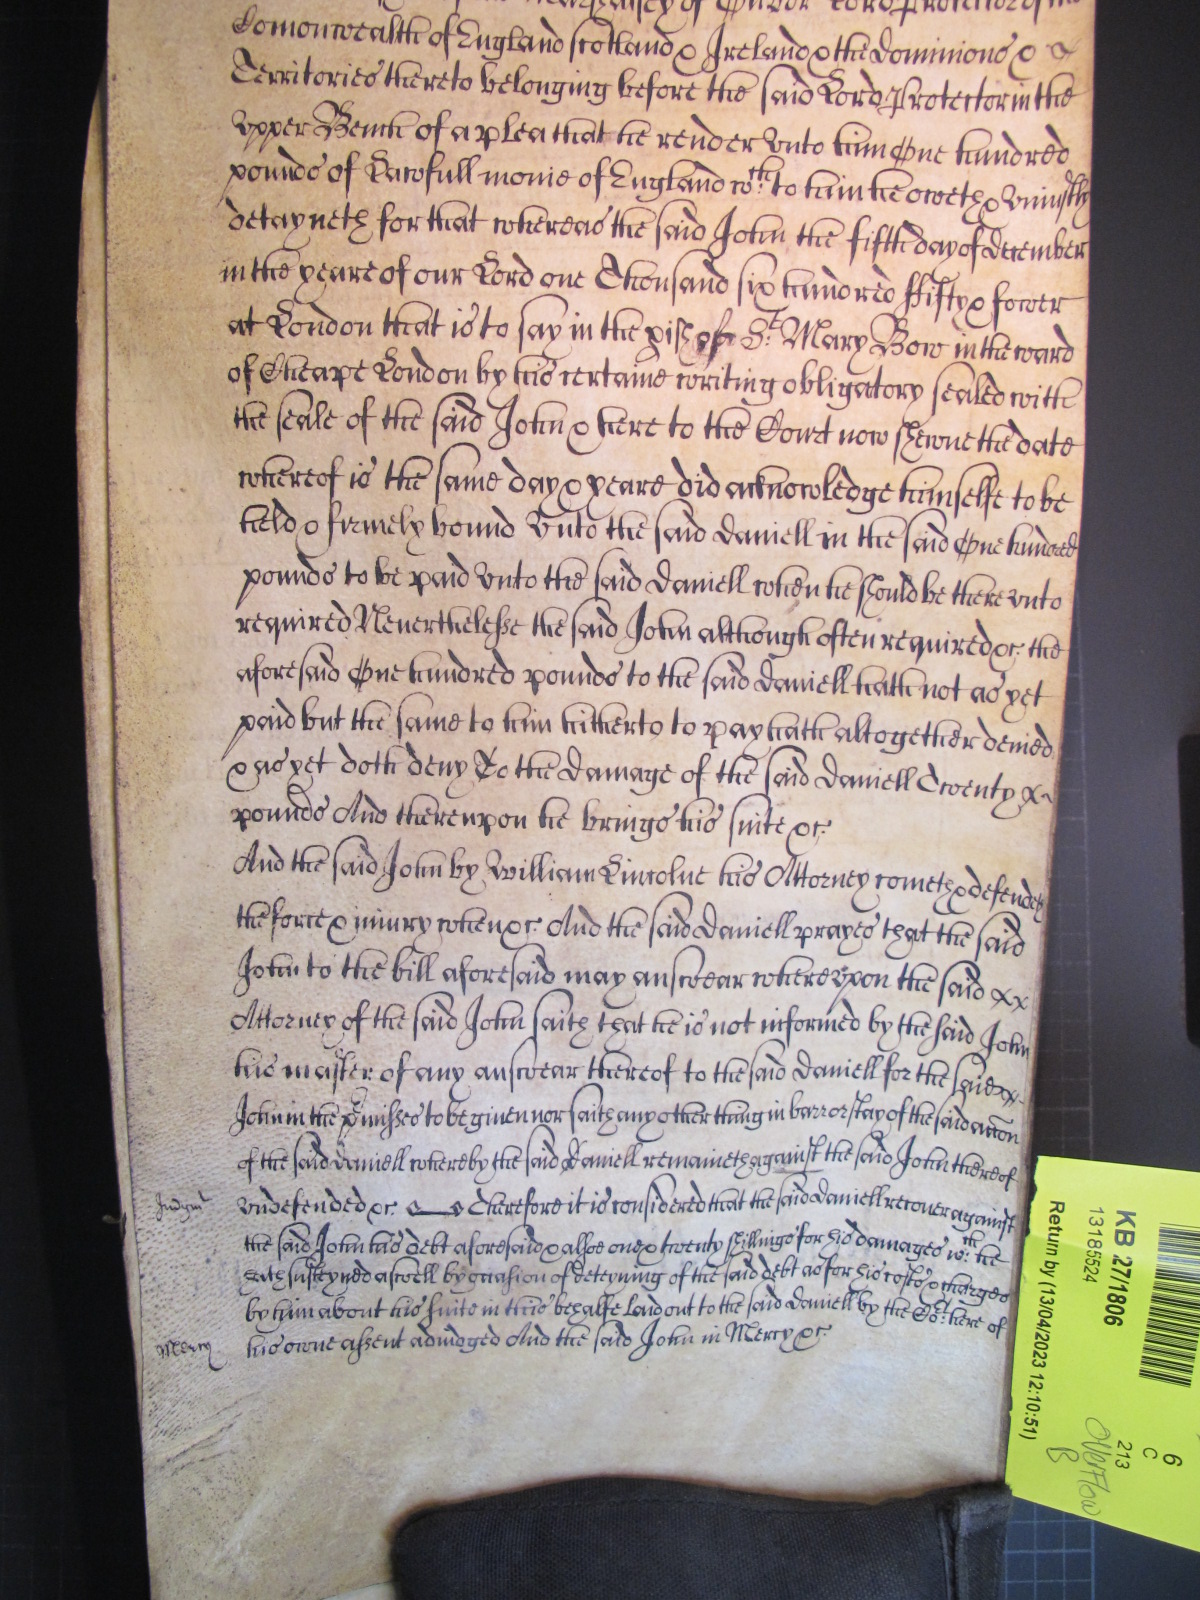 of Oliver Lord Protector of the
Comonwealth of England Scotland & Ireland & the Dominions &
Territories thereto belonging before the said Lord Protector in the
vpper Bench of a plea that he render vnto him One hundred
pounds of Lawfull monie of England wch: to him he oweth & vniustly
detayneth for that whereas the said John the fifth day of december
in the yeare of our Lord one Thousand six hundred ffifty & fower
at London that is to say in the pish of St. Mary Bow in the ward
of Cheape London by his certaine writing obligatory sealed with
the seale of the said John & here to the Court now shewne the date
whereof is the same day & yeare did acknowledge himselfe to be
held & firmely bound vnto the said daniell in the said One hundred
pounds to be paid vnto the said daniell when he should be there vnto
required Neverthelesse the said John although often required &c: the
aforesaid One hundred pounds to the said daniell hath not as yet
paid but the same to him hitherto to pay hath altogether denied
& as yet doth deny To the damage of the said daniell Twenty
pounds And therevpon he brings his suite &c:
And the said John by William Lincolne his Attorney cometh & defendeth
the force & iniury when &c: And the said daniell prayes that the said
John to the bill aforesaid may answear wherevpon the said
Attorney of the said John saith that he is not informed by the said John
his master of any answear thereof to the said daniell for the said
John in the pmisses to be given nor saith any other thing in barr or stay of the said accon
of the said daniell whereby the said daniell remaineth against the said John thereof
Judgmt vndefended &c. Therefore it is considered that the said daniell recover against
the said John his debt aforesaid & alsoe one & twenty shillings for his damages wch: he
hath susteyned aswell by occasion of deteyning of the said debt as for his costs & charges
by him about his suite in this behalfe laid out to the said daniell by the Cort: here of
Mercy his owne assent adiudged And the said John in Mercy &c:
KB 271806
13185524
Return by (13/04/2023 12:10:51)
6
C
213
Overflow
B